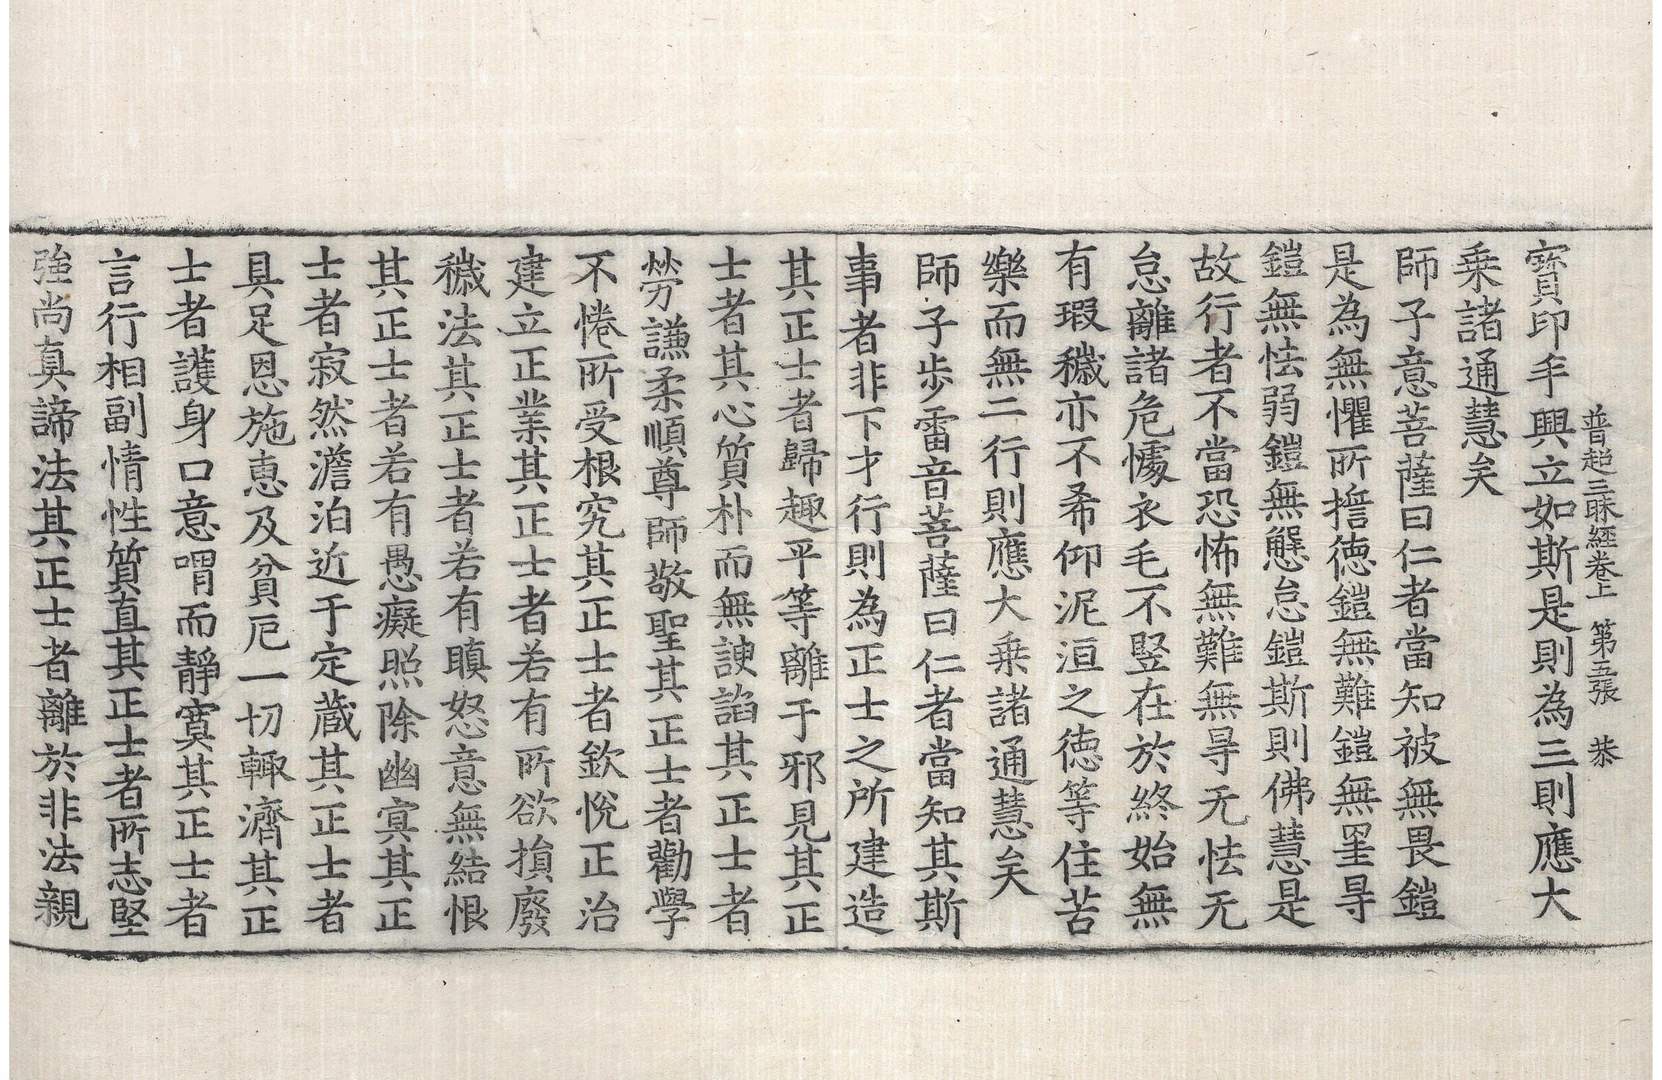 普超三昧經卷上　第五張　恭
寶印手興立如斯是則為三則應大
乘諸通慧矣
師子意菩薩曰仁者當知被無畏鎧
是為無懼所擔德鎧無難鎧無罣㝵
鎧無怯弱鎧無懈怠鎧斯則佛慧是
故行者不當恐怖無難無㝵无怯无
怠離諸危懅衣毛不竪在於終始無
有瑕穢亦不希仰泥洹之德等住苦
樂而無二行則應大乘諸通慧矣
師子步雷音菩薩曰仁者當知其斯
事者非下才行則為正士之所建造
其正士者歸趣平等離于邪見其正
士者其心質朴而無諛諂其正士者
勞謙柔順尊師敬聖其正士者勸學
不惓所受根究其正士者欽悅正治
建立正業其正士者若有所欲損廢
穢法其正士者若有瞋怒意無結恨
其正士者若有愚癡照除幽冥其正
士者寂然澹泊近于定蔵其正士者
具足恩施恵及貧厄一切輙濟其正
士者護身口意喟而靜寞其正士者
言行相副情性質直其正士者所志堅
強尚真諦法其正士者離於非法親